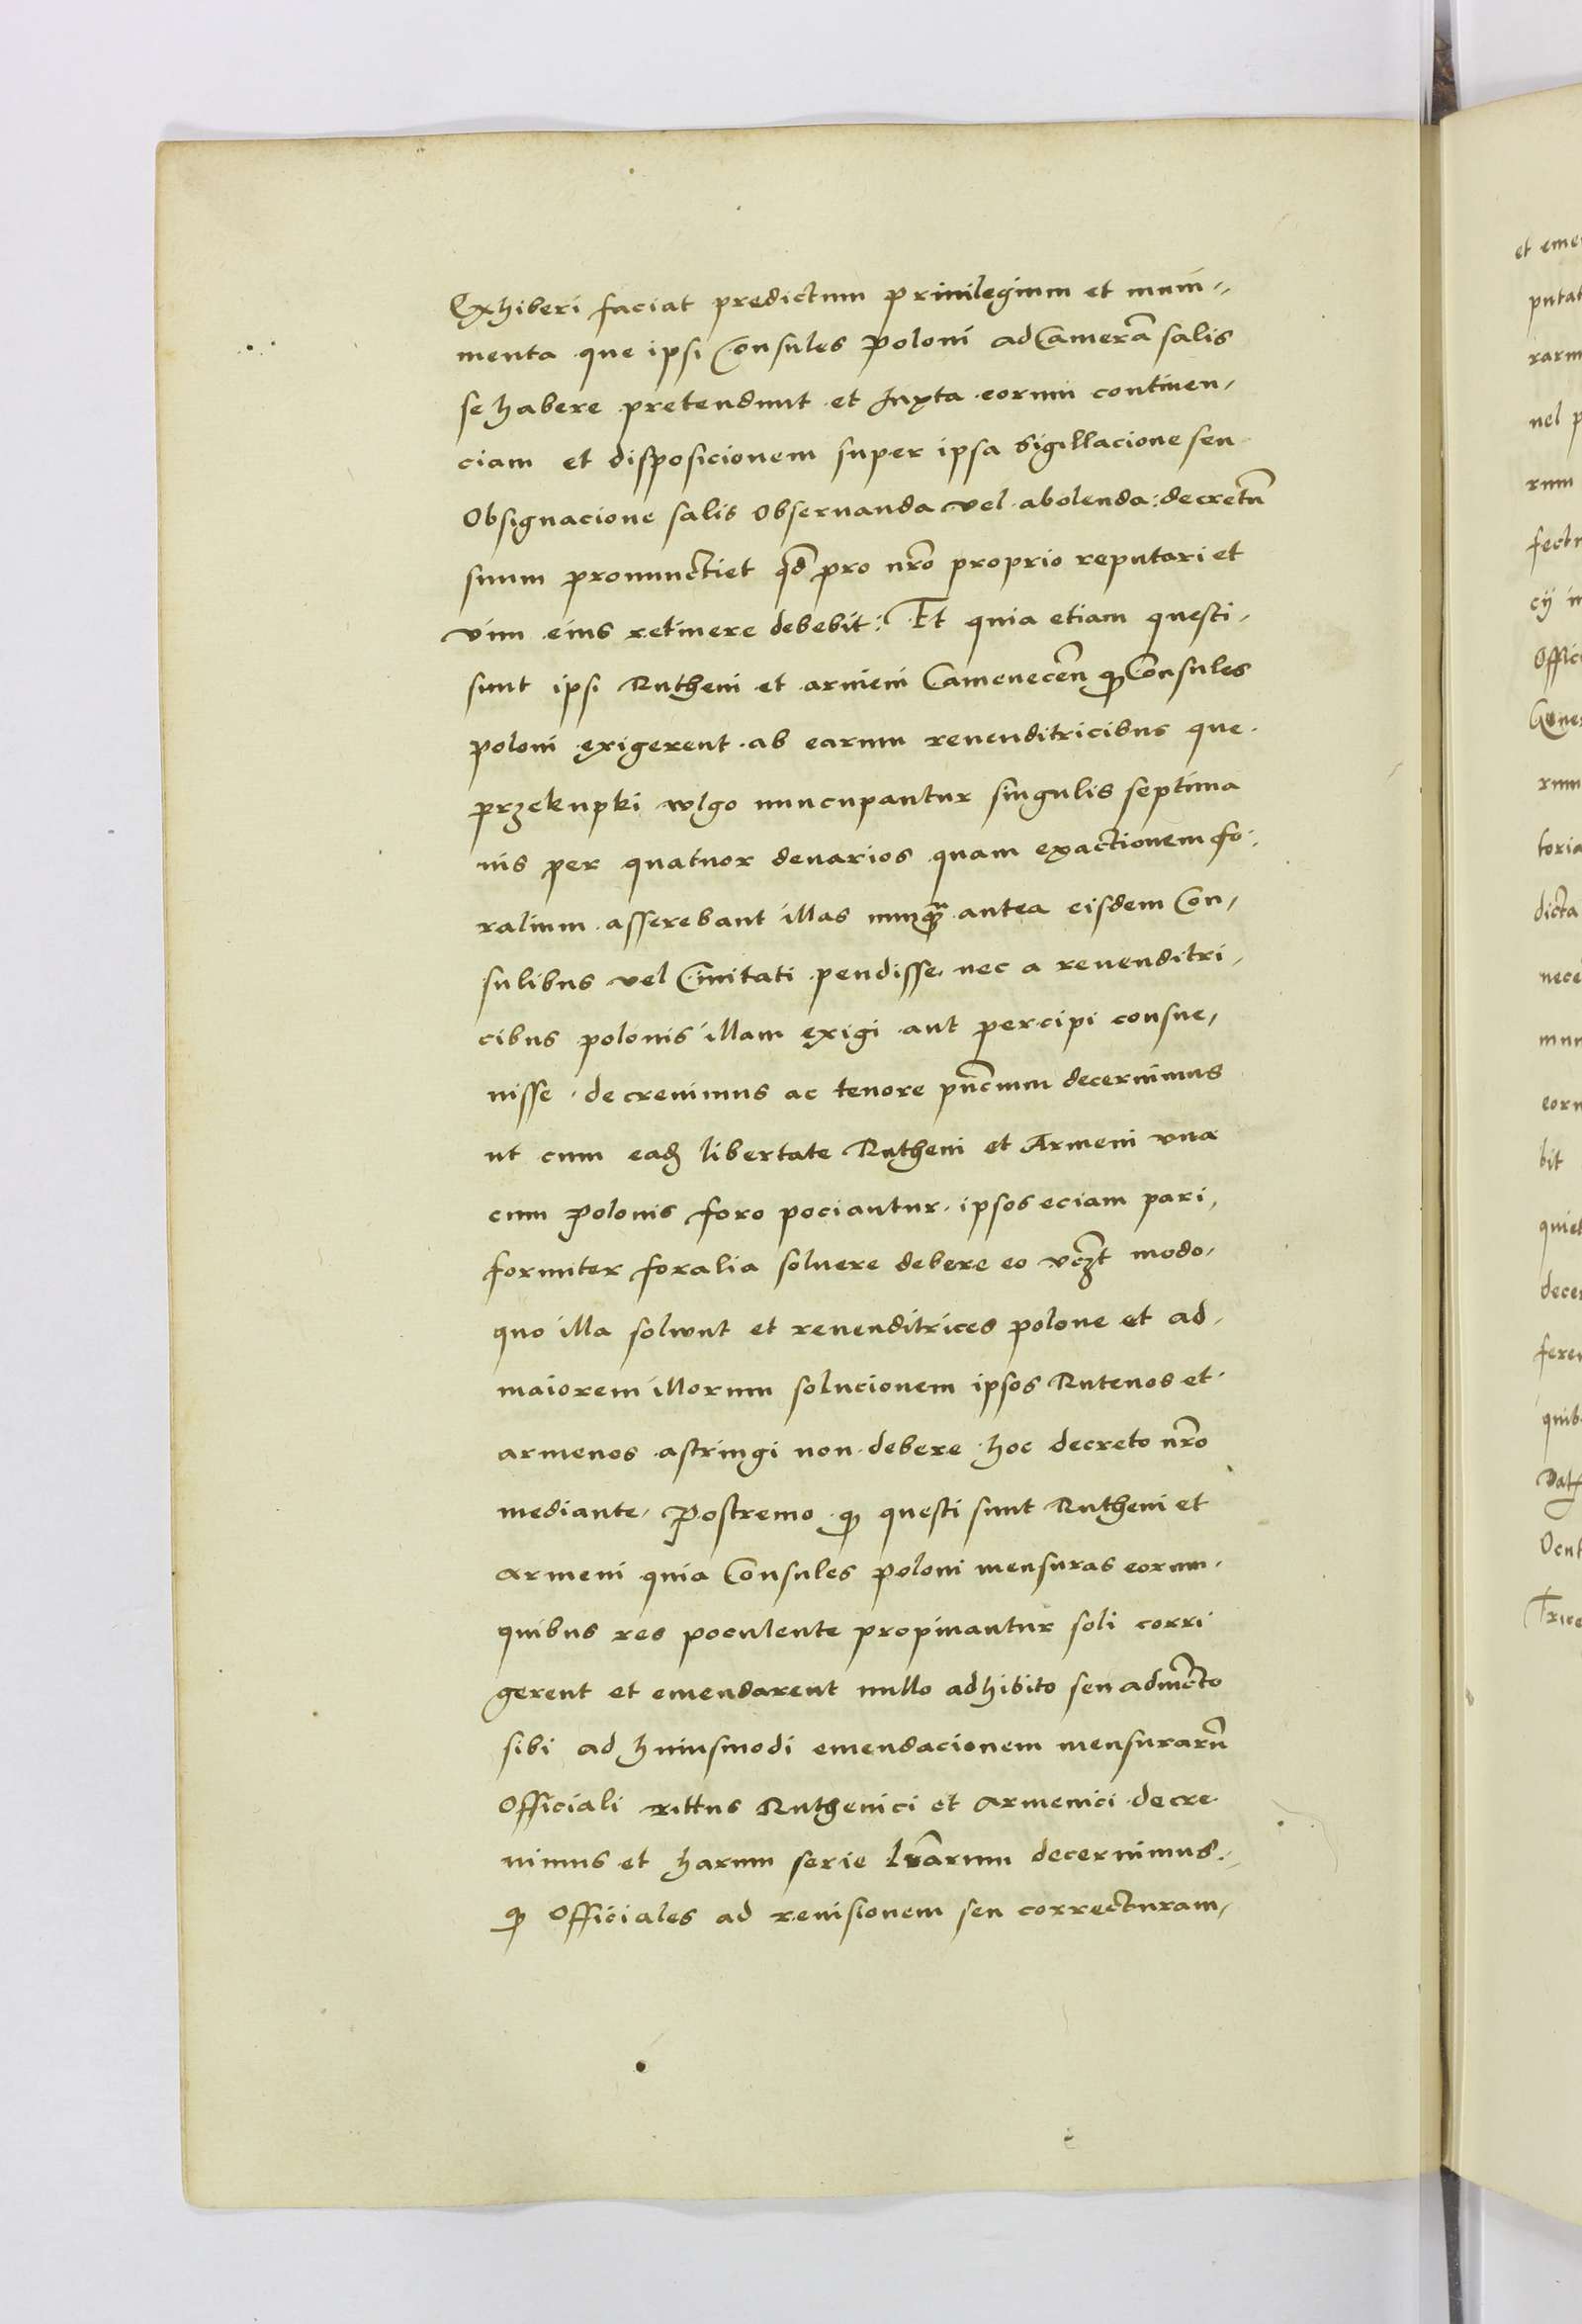 Exhiberi faciat predictum priuilegium et muni-
menta que ipsi Consules Poloni ad Camerã salis
se habere pretendunt et Juxta eorum continen-
ciam et disposicionem super ipsa sigillacione seu
Obsignacione salis Obseruanda vel abolenda: decretũ
suum pronunctiet qd̃ pro nr̃o proprio reputari et
vim eius retinere debebit: Et quia etiam questi-
sunt ipsi Rutheni et armeni Camenecen̄ ꝙ Consules
poloni exigerent ab earum reuenditricibus que
przekupki wlgo nuncupantur singulis septima
nis per quatuor denarios quam exactionem fo-
ralium asserebant illas nunqᷓ antea eisdem Con-
sulibus vel Ciuitati pendisse nec a reuenditri-
cibus polonis illam exigi aut percipi consue-
uisse. decreuimus ac tenore pñcium decernimus
ut cum eadẽ libertate Rutheni et Armeni vna
cum Polonis foro pociantur. ipsos eciam pari-
formiter foralia soluere debere eo vcꝫt modo
quo illa solwnt et reuenditrices polone et ad
maiorem illorum solucionem ipsos Rutenos et
armenos astringi non debere hoc decreto nr̃o
mediante. Postremo ꝙ questi sunt Rutheni et
Armeni quia Consules poloni mensuras eorum
quibus res poculente propinantur soli corri
gerent et emendarent nullo adhibito seu adiũcto
sibi ad huiusmodi emendacionem mensurarũ
Officiali rittus Ruthenici et Armenici decre
uimus et harum serie lr̃arum decernimus.
ꝙ Officiales ad reuisionem seu correcturam-
et eme
putat
rarm
uel p
rum
cij
Offici
rum
toria
dicta
nece
mun
eoru
bit
quiet
decer
feren
quib
Dat